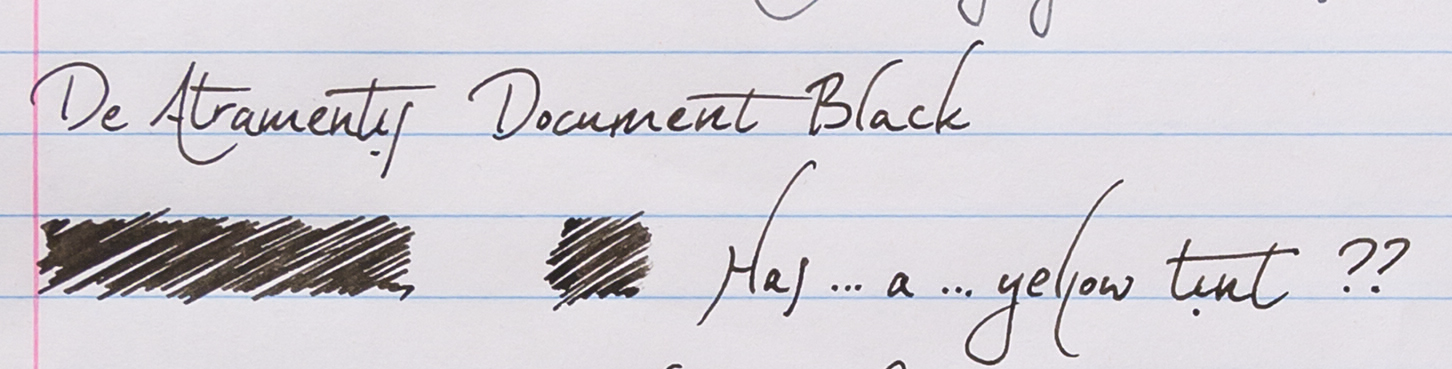 De Atramentis Document Black
Has ... a ... yellow tint ??